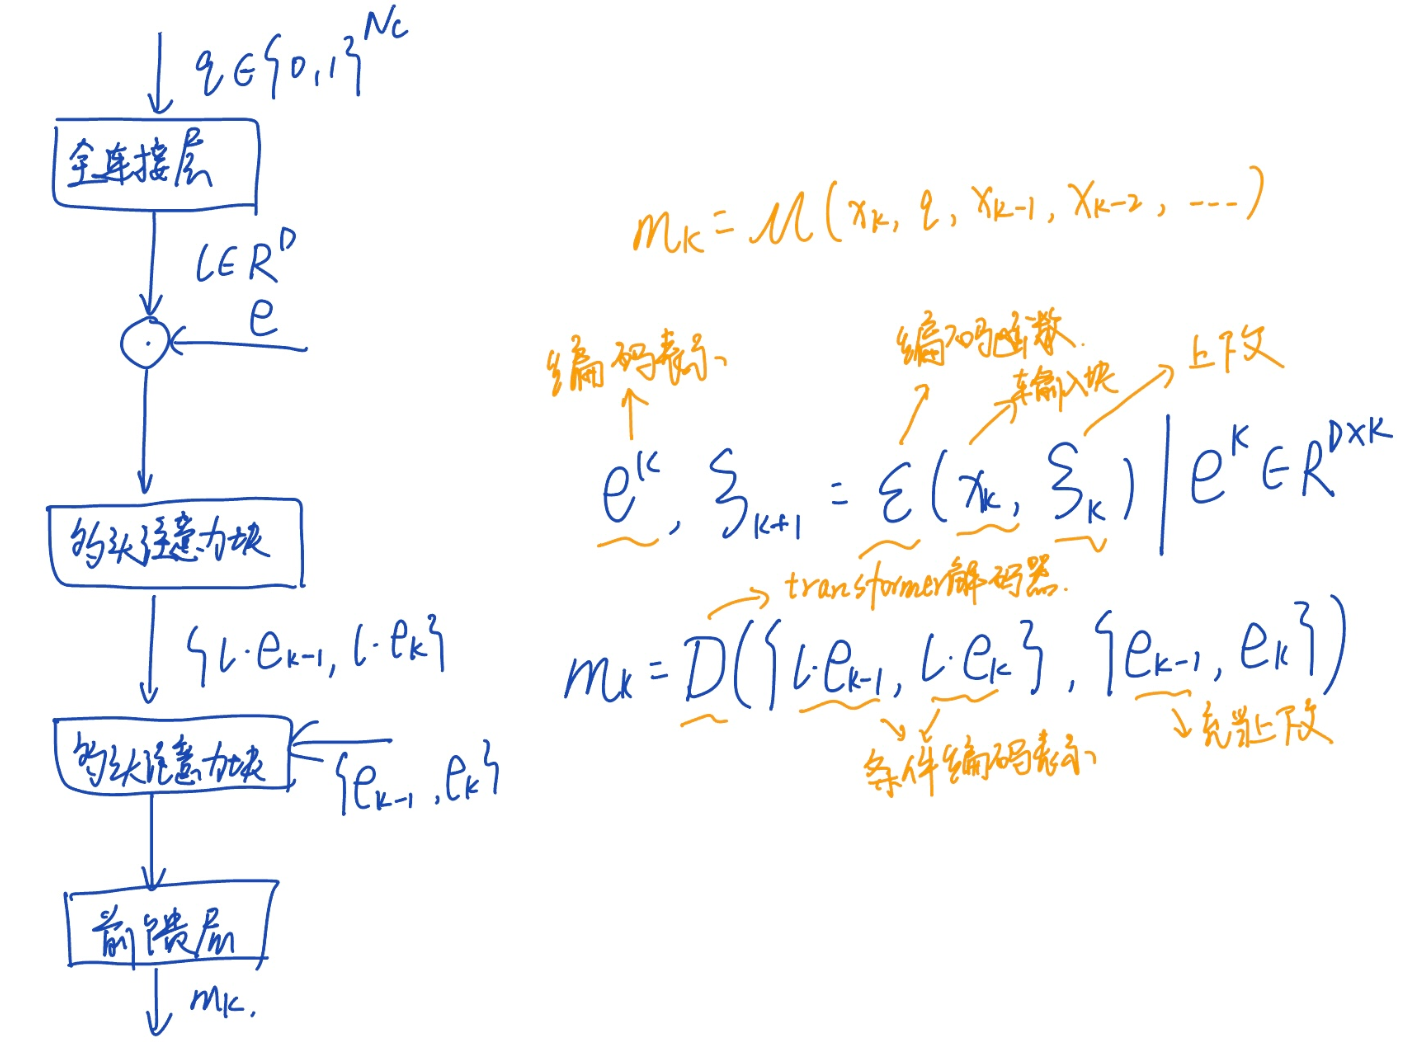 q ∈ {0,1}^Nc
全连接层
l ∈ R^D
e
多头注意力块
{l·e_{k-1}, l·e_k}
多头注意力块
{e_{k-1}, e_k}
前馈层
m_k.
m_k = M(x_k, q, x_{k-1}, x_{k-2}, ----)
编码表示
编码函数.
输入块
上下文
e^k, ξ_{k+1} = ε(x_k, ξ_k) | e^k ∈ R^{D×K}
transformer解码器.
m_k = D({l·e_{k-1}, l·e_k}, {e_{k-1}, e_k})
条件编码表示
充当上下文